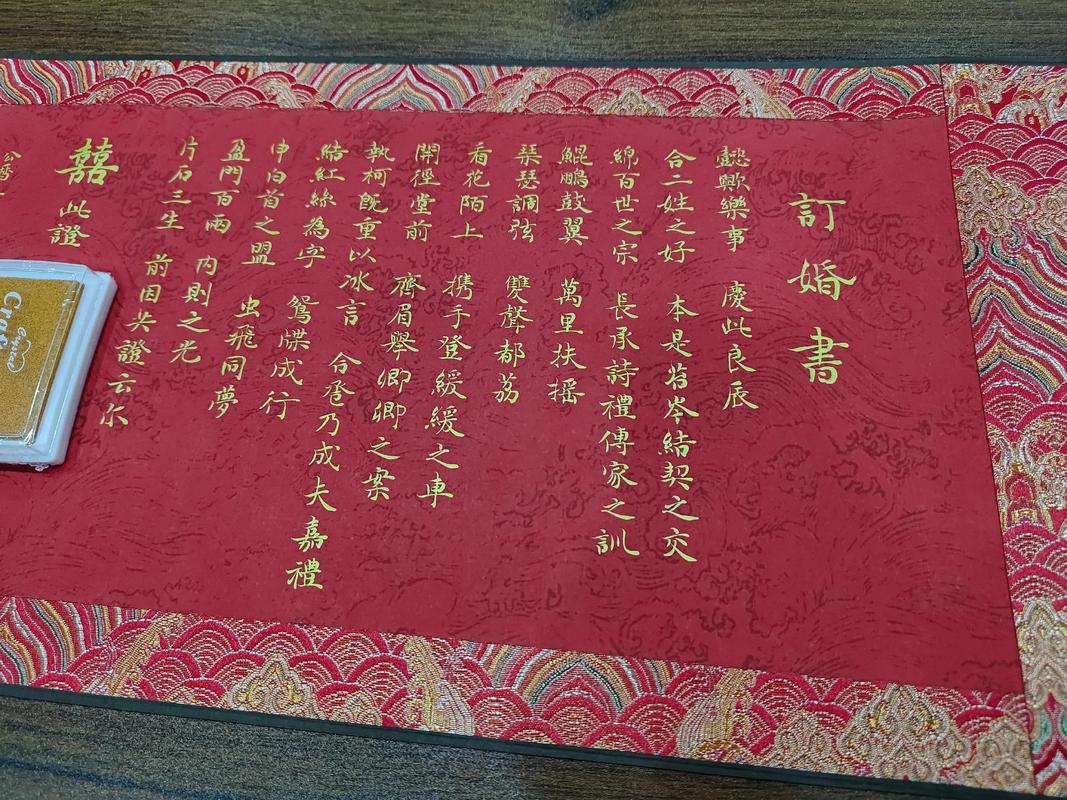 訂婚書
懿歟樂事 慶此良辰
合二姓之好 本是苔岑結契之交
綿百世之宗 長承詩禮傳家之訓
鯤鵬鼓翼 萬里扶摇
琴瑟調弦 雙聲都荔
看花陌上 携手登緩緩之車
開徑堂前 齊眉舉卿卿之案
執柯既重以冰言 合卺乃成夫嘉禮
結紅絲為字 鴛牒成行
申白首之盟 虫飛同夢
盈門百兩 内則之光
片石三生 前因共證云尔
囍 此證
公曆
Craft